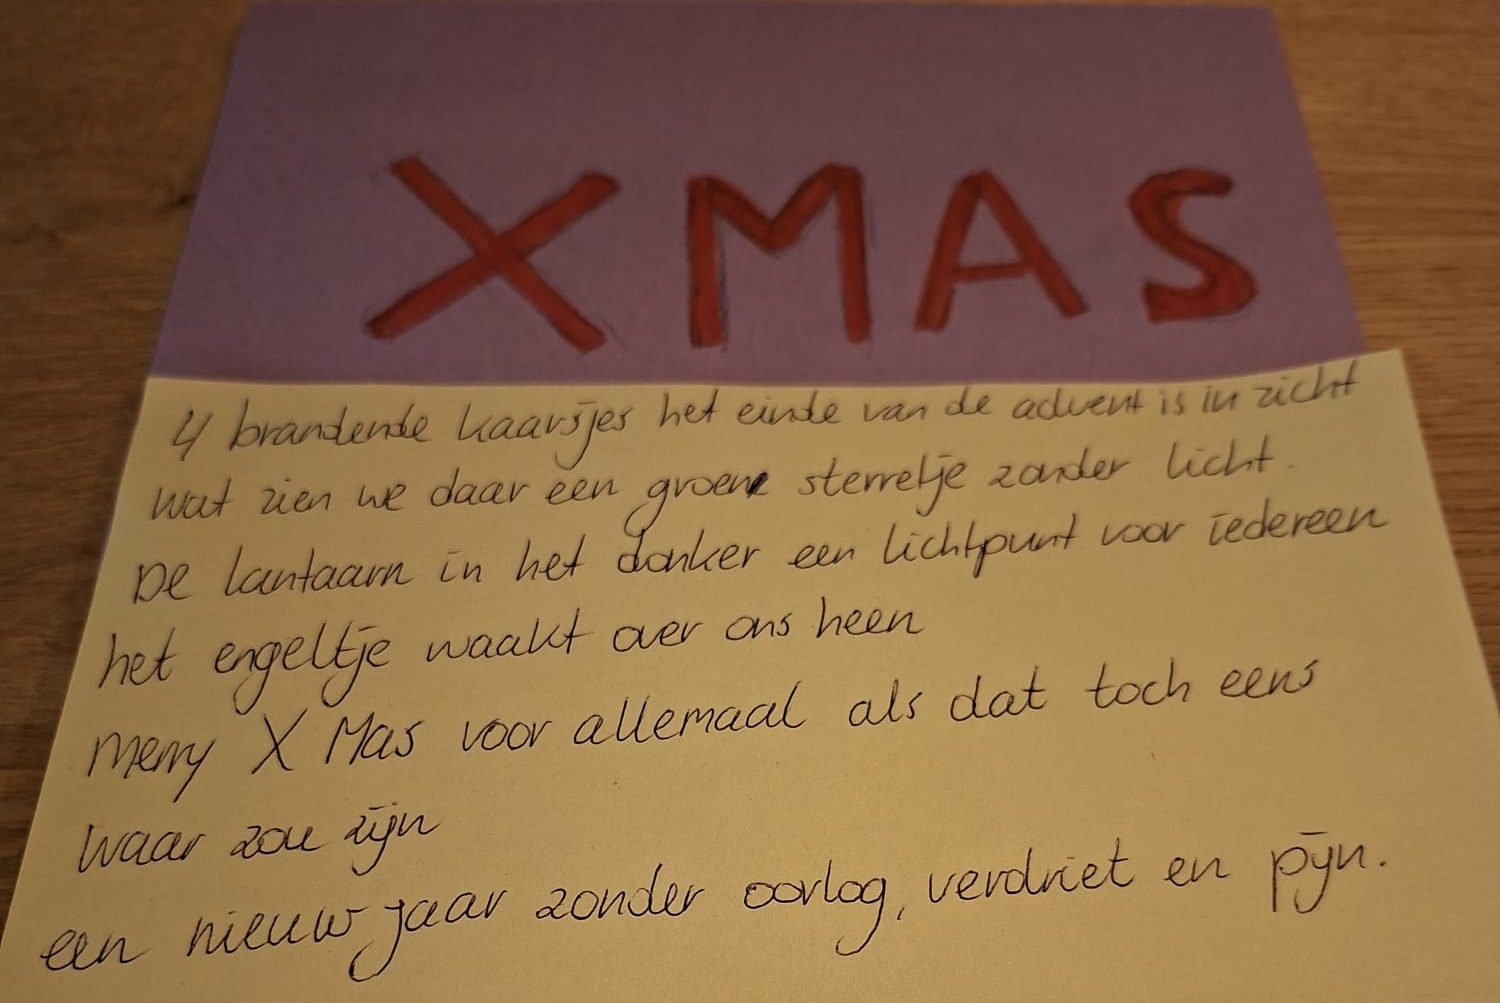 XMAS
4 brandende kaarsjes het einde van de advent is in zicht
wat zien we daar een groene sterretje zonder licht.
De lantaarn in het donker een lichtpunt voor iedereen
het engeltje waakt over ons heen
Merry X Mas voor allemaal als dat toch eens
waar zou zijn
een nieuw jaar zonder oorlog, verdriet en pijn.